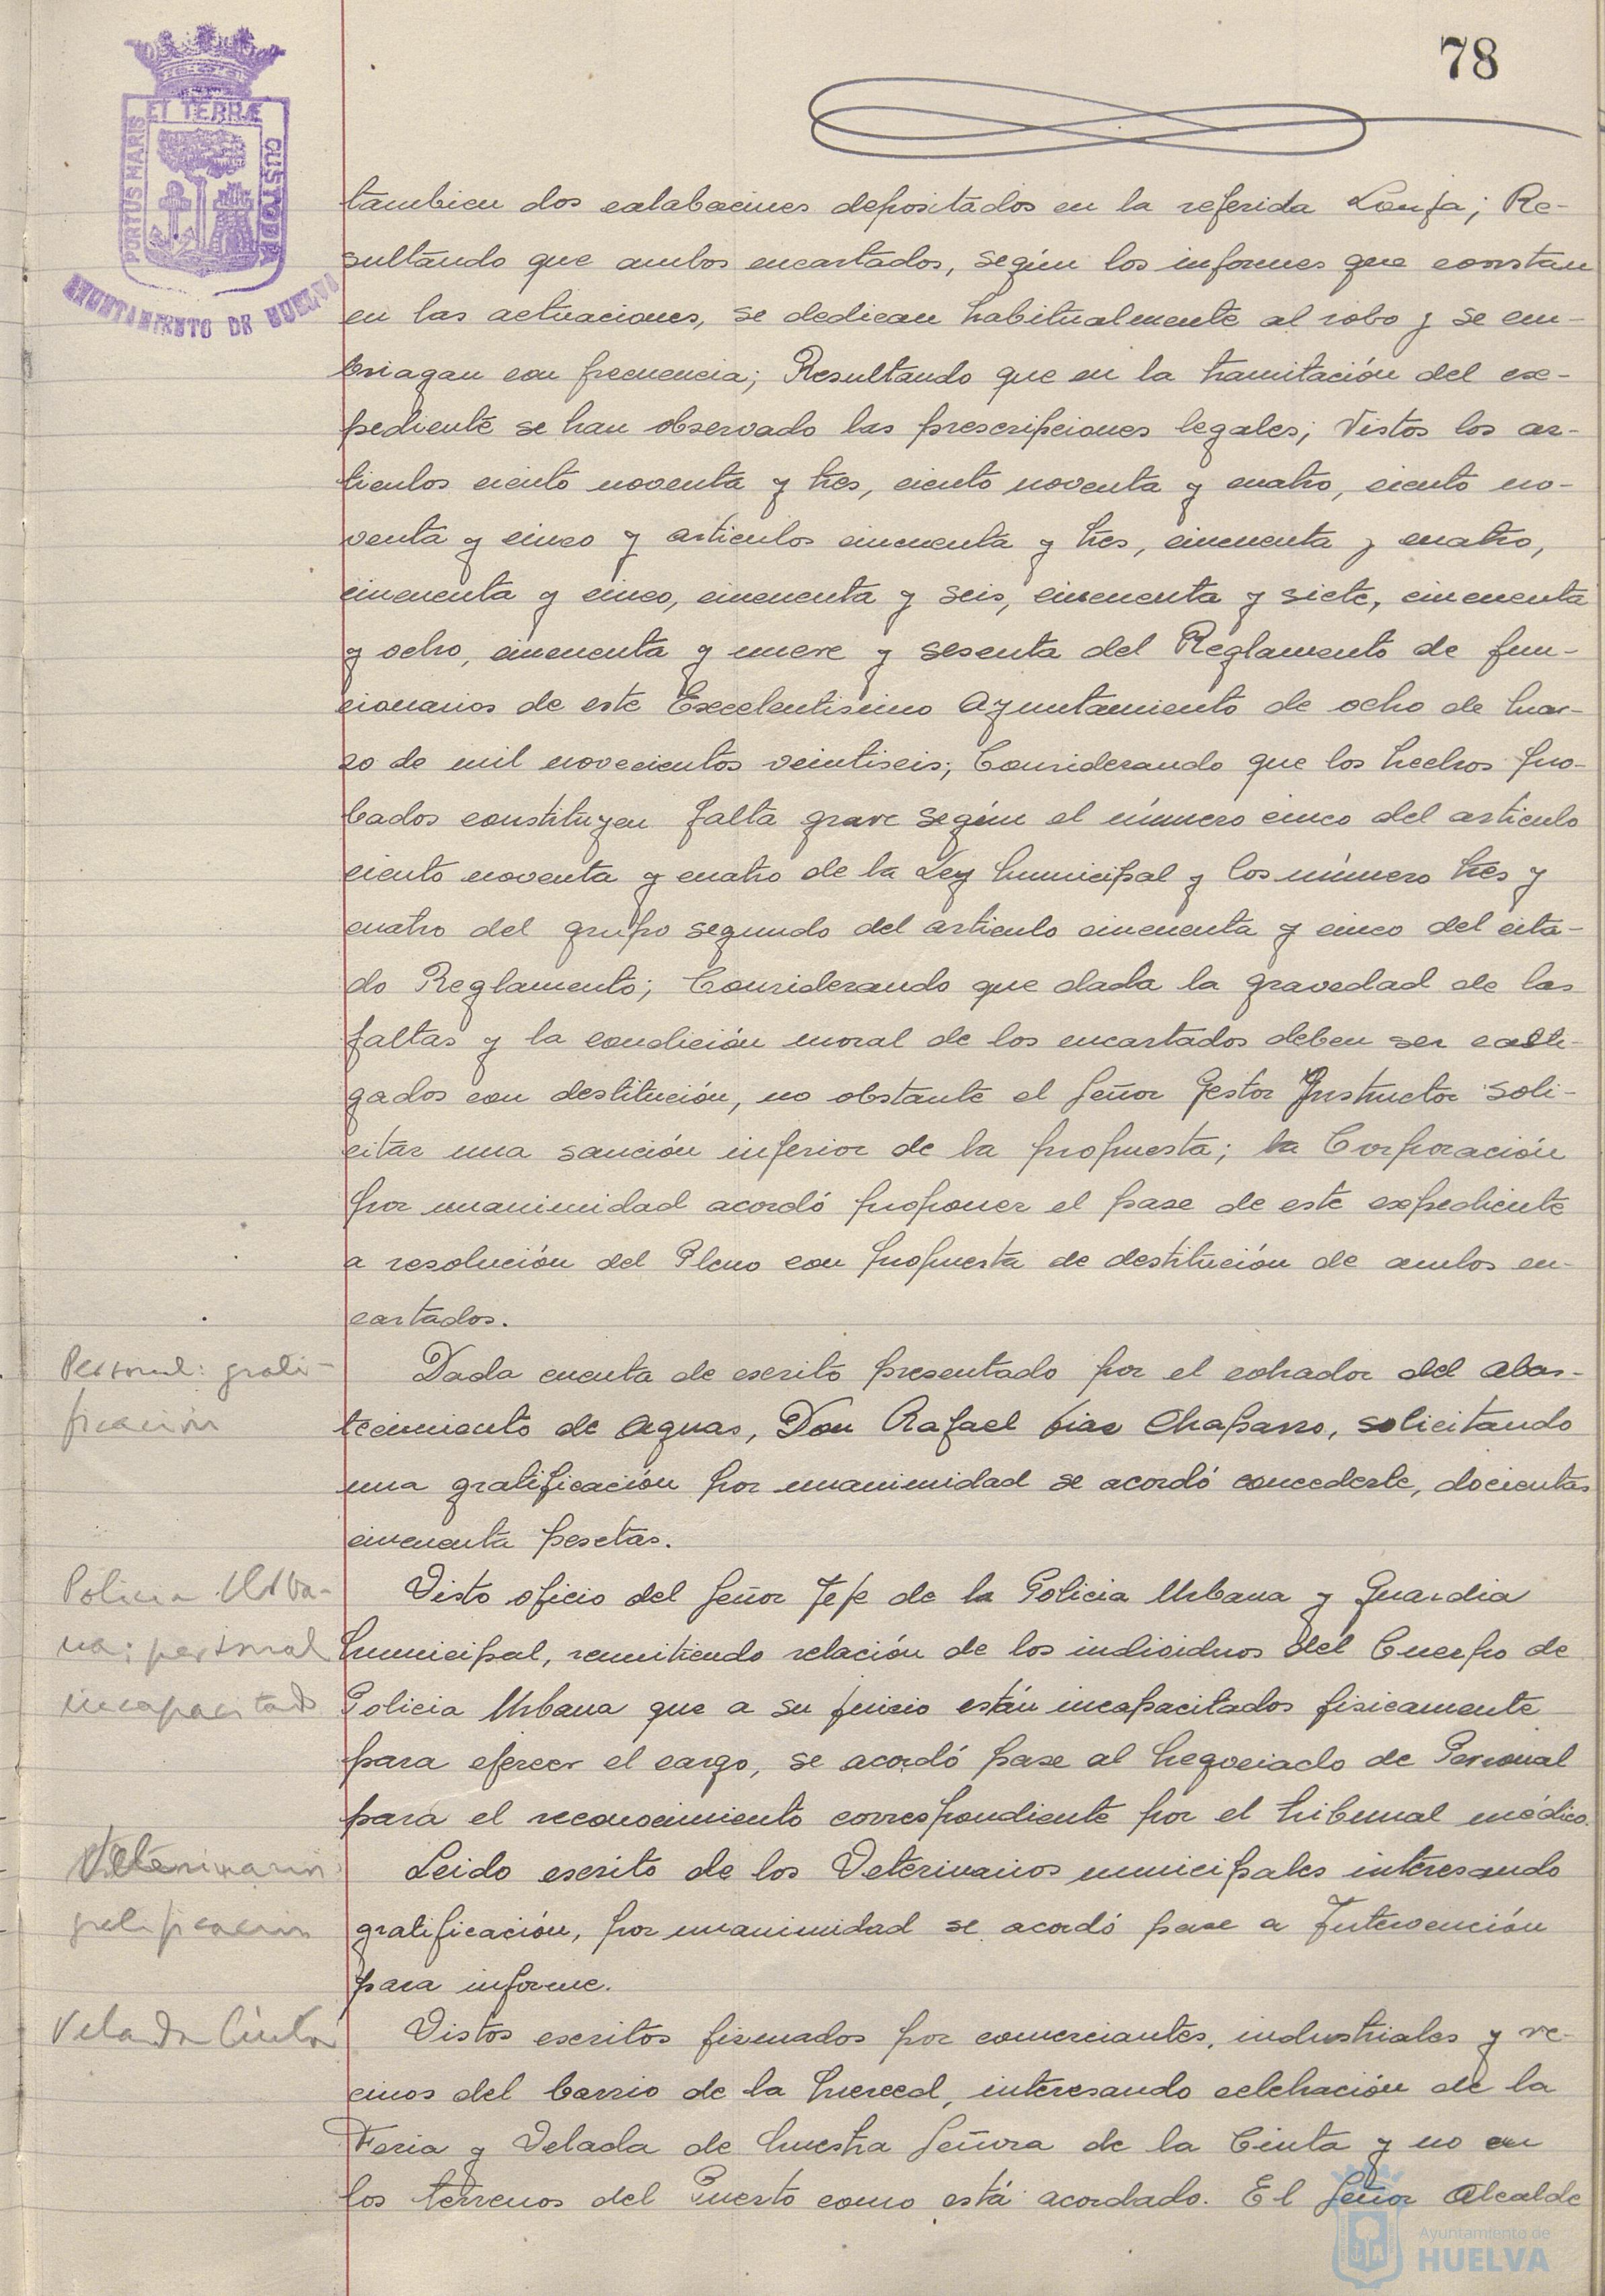 78
ET TERRÆ
PORTUS MARIS
CUSTODIA
AYUNTAMIENTO DE HUELVA
tambien dos calabacines depositados en la referida Lonja; Re-
sultando que ambos encartados, según los informes que constan
en las actuaciones, se dedican habitualmente al robo y se em-
briagan con frecuencia; Resultando que en la tramitación del ex-
pediente se han observado las prescripciones legales; Vistos los ar-
ticulos ciento noventa y tres, ciento noventa y cuatro, ciento no-
venta y cinco y articulos cincuenta y tres, cincuenta y cuatro,
cincuenta y cinco, cincuenta y seis, cincuenta y siete, cincuenta
y ocho, cincuenta y nueve y sesenta del Reglamento de fun-
cionarios de este Excelentisimo Ayuntamiento de ocho de Mar-
zo de mil novecientos veintiseis; Considerando que los hechos pro-
bados constituyen falta grave según el número cinco del articulo
ciento noventa y cuatro de la Ley Municipal y los número tres y
cuatro del grupo segundo del articulo cincuenta y cinco del cita-
do Reglamento; Considerando que dada la gravedad de las
faltas y la condición moral de los encartados deben ser casti-
gados con destitución, no obstante el Señor Gestor Instructor soli-
citar una sanción inferior de la propuesta; la Corporación
por unanimidad acordó proponer el pase de este expediente
a resolución del Pleno con propuesta de destitución de ambos en-
cartados.
Personal: grati-
ficación
Dada cuenta de escrito presentado por el cobrador del abas-
tecimiento de aguas, Don Rafael Diaz Chaparro, solicitando
una gratificación por unanimidad se acordó concederle, docientas
cincuenta pesetas.
Policia Urba-
na: personal
incapacitado
Visto oficio del Señor Jefe de la Policia Urbana y Guardia
Municipal, remitiendo relación de los individuos del Cuerpo de
Policia Urbana que a su juicio están incapacitados fisicamente
para ejercer el cargo, se acordó pase al Negociado de Personal
para el reconocimiento correspondiente por el tribunal médico.
Veterinarios
gratificación
Leido escrito de los Veterinarios municipales interesando
gratificación, por unanimidad se acordó pase a Intervención
para informe.
Velada Cinta
Vistos escritos firmados por comerciantes, industriales y ve-
cinos del barrio de la Merced, interesando celebración de la
Feria y Velada de Nuestra Señora de la Cinta y no en
los terrenos del Puerto como está acordado. El Señor Alcalde
Ayuntamiento de
HUELVA